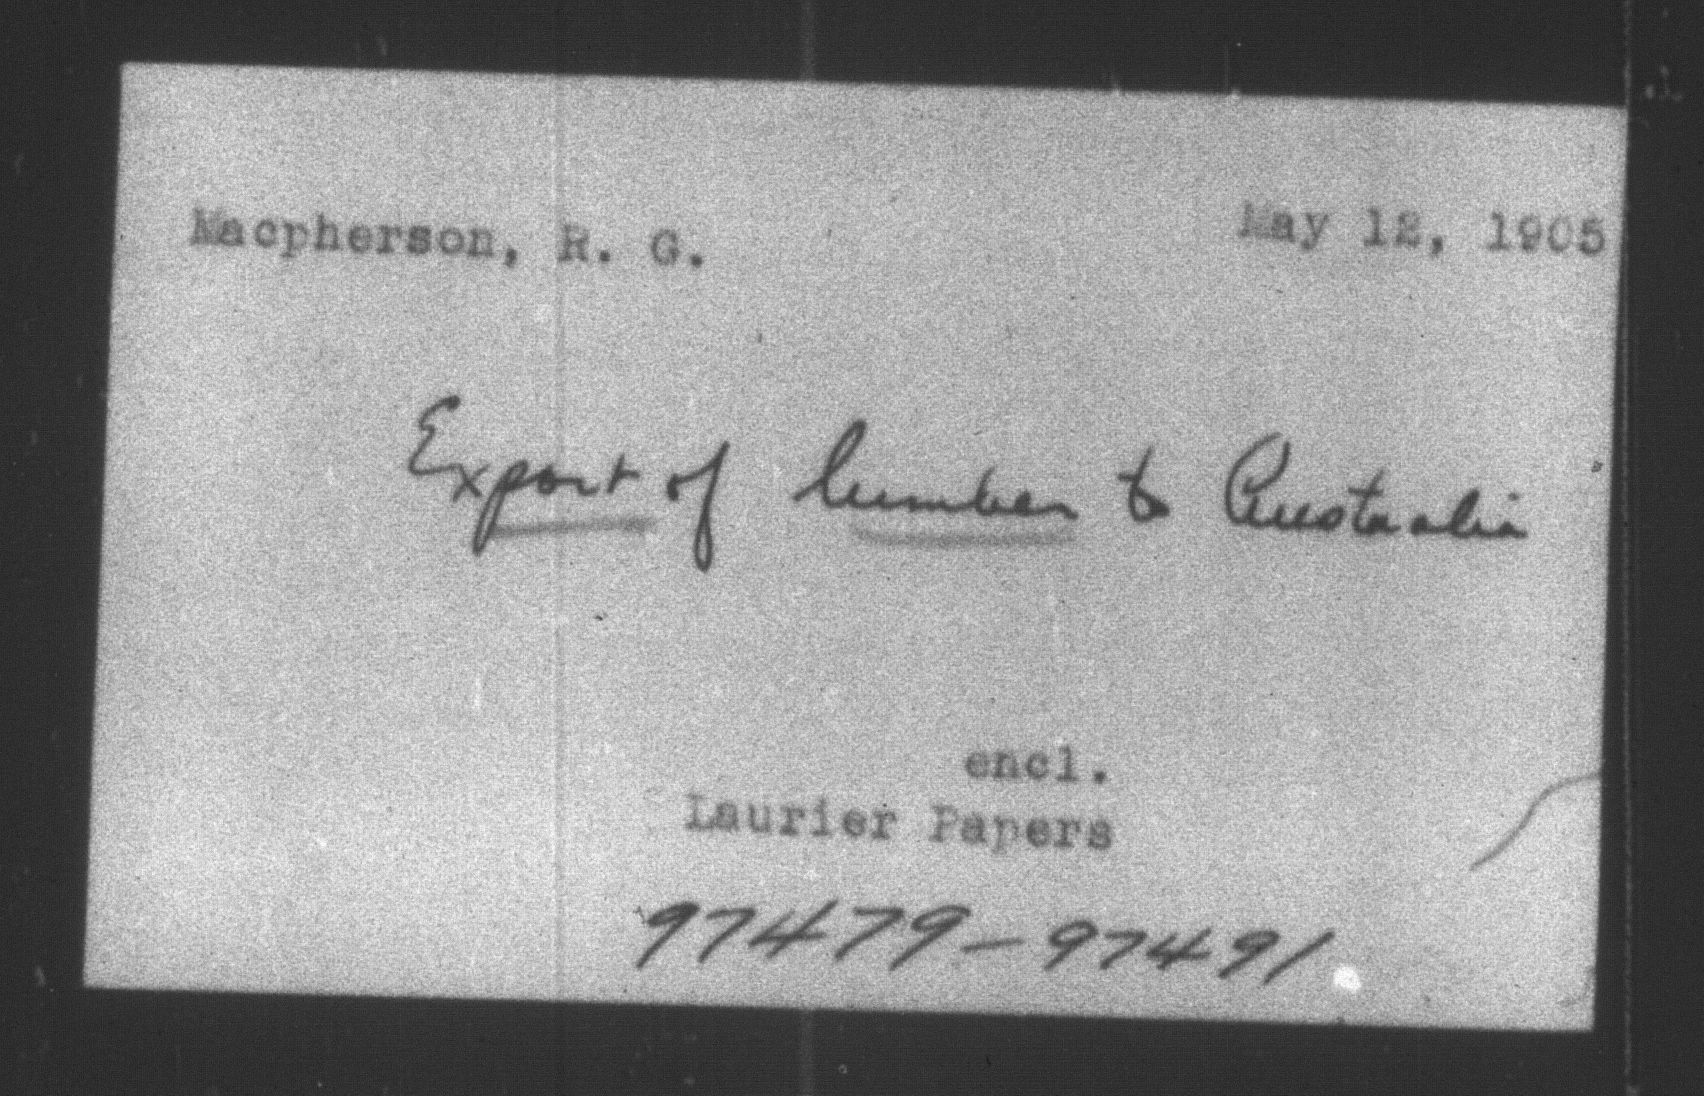 Macpherson, R. G. May 12, 1905
Export of lumber to Australia
encl.
Laurier Papers
97479-97491